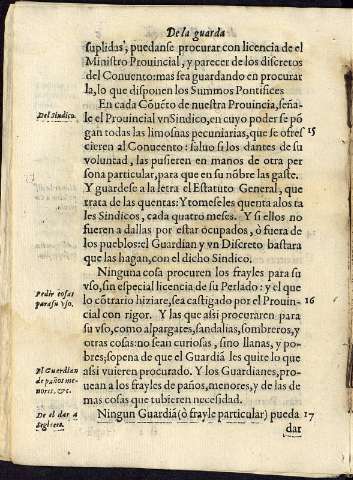 De la guarda
suplidas, puedanse procurar con licencia de el
Ministro Prouincial, y parecer de los discretos
del Conuento: mas sea guardando en procurar
la, lo que disponen los Summos Pontifices
En cada Cõuẽto de nuestra Prouincia, seña-
Del Sindico.
le el Prouincial vn Sindico, en cuyo poder se põ
gan todas las limosnas pecuniarias, que se ofres
15
cieren al Conuento: saluo si los dantes de su
voluntad, las pusieren en manos de otra per
sona particular, para que en su nõbre las gaste.
Y guardese a la letra el Estatuto General, que
trata de las quentas: Y tomeseles quenta alos ta
les Sindicos, cada quatro meses. Y si ellos no
fueren a dallas por estar ocupados, ò fuera de
los pueblos: el Guardian y vn Discreto bastara
que las hagan, con el dicho Sindico.
Ninguna cosa procuren los frayles para su
Pedir cosas
para su vso.
vso, sin especial licencia de su Perlado: y el que
lo cõtrario hiziare, sea castigado por el Prouin-
16
cial con rigor. Y las que assi procuraren para
su vso, como alpargates, sandalias, sombreros, y
otras cosas: no sean curiosas, sino llanas, y po-
bres; so pena de que el Guardiã les quite lo que
El Guardian
de paños me-
nores, &c.
assi vuieren procurado. Y los Guardianes, pro-
uean a los frayles de paños, menores, y de las de
mas cosas que tubieren necesidad.
De el dar a
Seglares.
Ningun Guardiã (ò frayle particular) pueda
17
dar